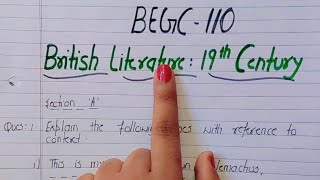 BEGC-110
British Literature: 19th Century
Section 'A'
Ques: 1 Explain the following lines with reference to
context.
i) This is my Telemachus,